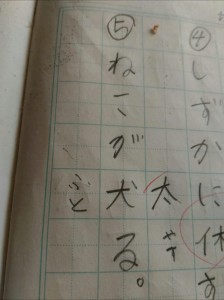 ④しずかに休す
太
⑤ねこが犬る。
ふと